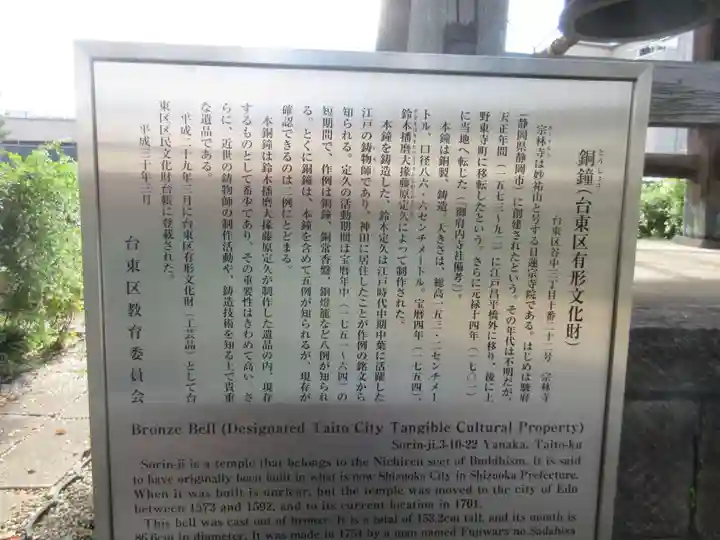 銅鐘(台東区有形文化財)
どうしょう
台東区谷中三丁目十番二十二号 宗林寺
宗林寺は妙祐山と号する日蓮宗寺院である。はじめは駿府
(静岡県静岡市)に創建されたという。その年代は不明だが、
天正年間(一五七三~九二)に江戸昌平橋外に移り、後に上
野東寺町に移転したという。さらに元禄十四年(一七〇一)
に当地へ転じた(『御府内寺社備考』)。
本鐘は銅製、鋳造。大きさは、総高一五三・二センチメー
トル、口径八六・六センチメートル。宝暦四年(一七五四)、
鈴木播磨大掾藤原定久によって制作された。
本鐘を鋳造した、鈴木定久は江戸時代中期中葉に活躍した
江戸の鋳物師であり、神田に居住したことが作例の銘文から
知られる。定久の活動期間は宝暦年中(一七五一~六四)の
短期間で、作例は銅鐘、銅常香盤、銅燈籠など八例が知られ
る。とくに銅鐘は、本鐘を含めて五例が知られるが、現存が
確認できるのは二例にとどまる。
本銅鐘は鈴木播磨大掾藤原定久が制作した遺品の内、現存
するものとして希少であり、その重要性はきわめて高い。さ
らに、近世の鋳物師の制作活動や、鋳造技術を知る上で貴重
な遺品である。
平成二十九年三月に台東区有形文化財(工芸品)として台
東区区民文化財台帳に登載された。
平成三十年三月
台東区教育委員会
Bronze Bell (Designated Taito City Tangible Cultural Property)
Sorin-ji, 3-10-22 Yanaka, Taito-ku
Sorin-ji is a temple that belongs to the Nichiren sect of Buddhism. It is said
to have originally been built in what is now Shizuoka City in Shizuoka Prefecture.
When it was built is unclear, but the temple was moved to the city of Edo
between 1573 and 1592, and to its current location in 1701.
This bell was cast out of bronze. It is a total of 153.2cm tall, and its mouth is
86.6cm in diameter. It was made in 1754 by a man named Fujiwara no Sadahisa